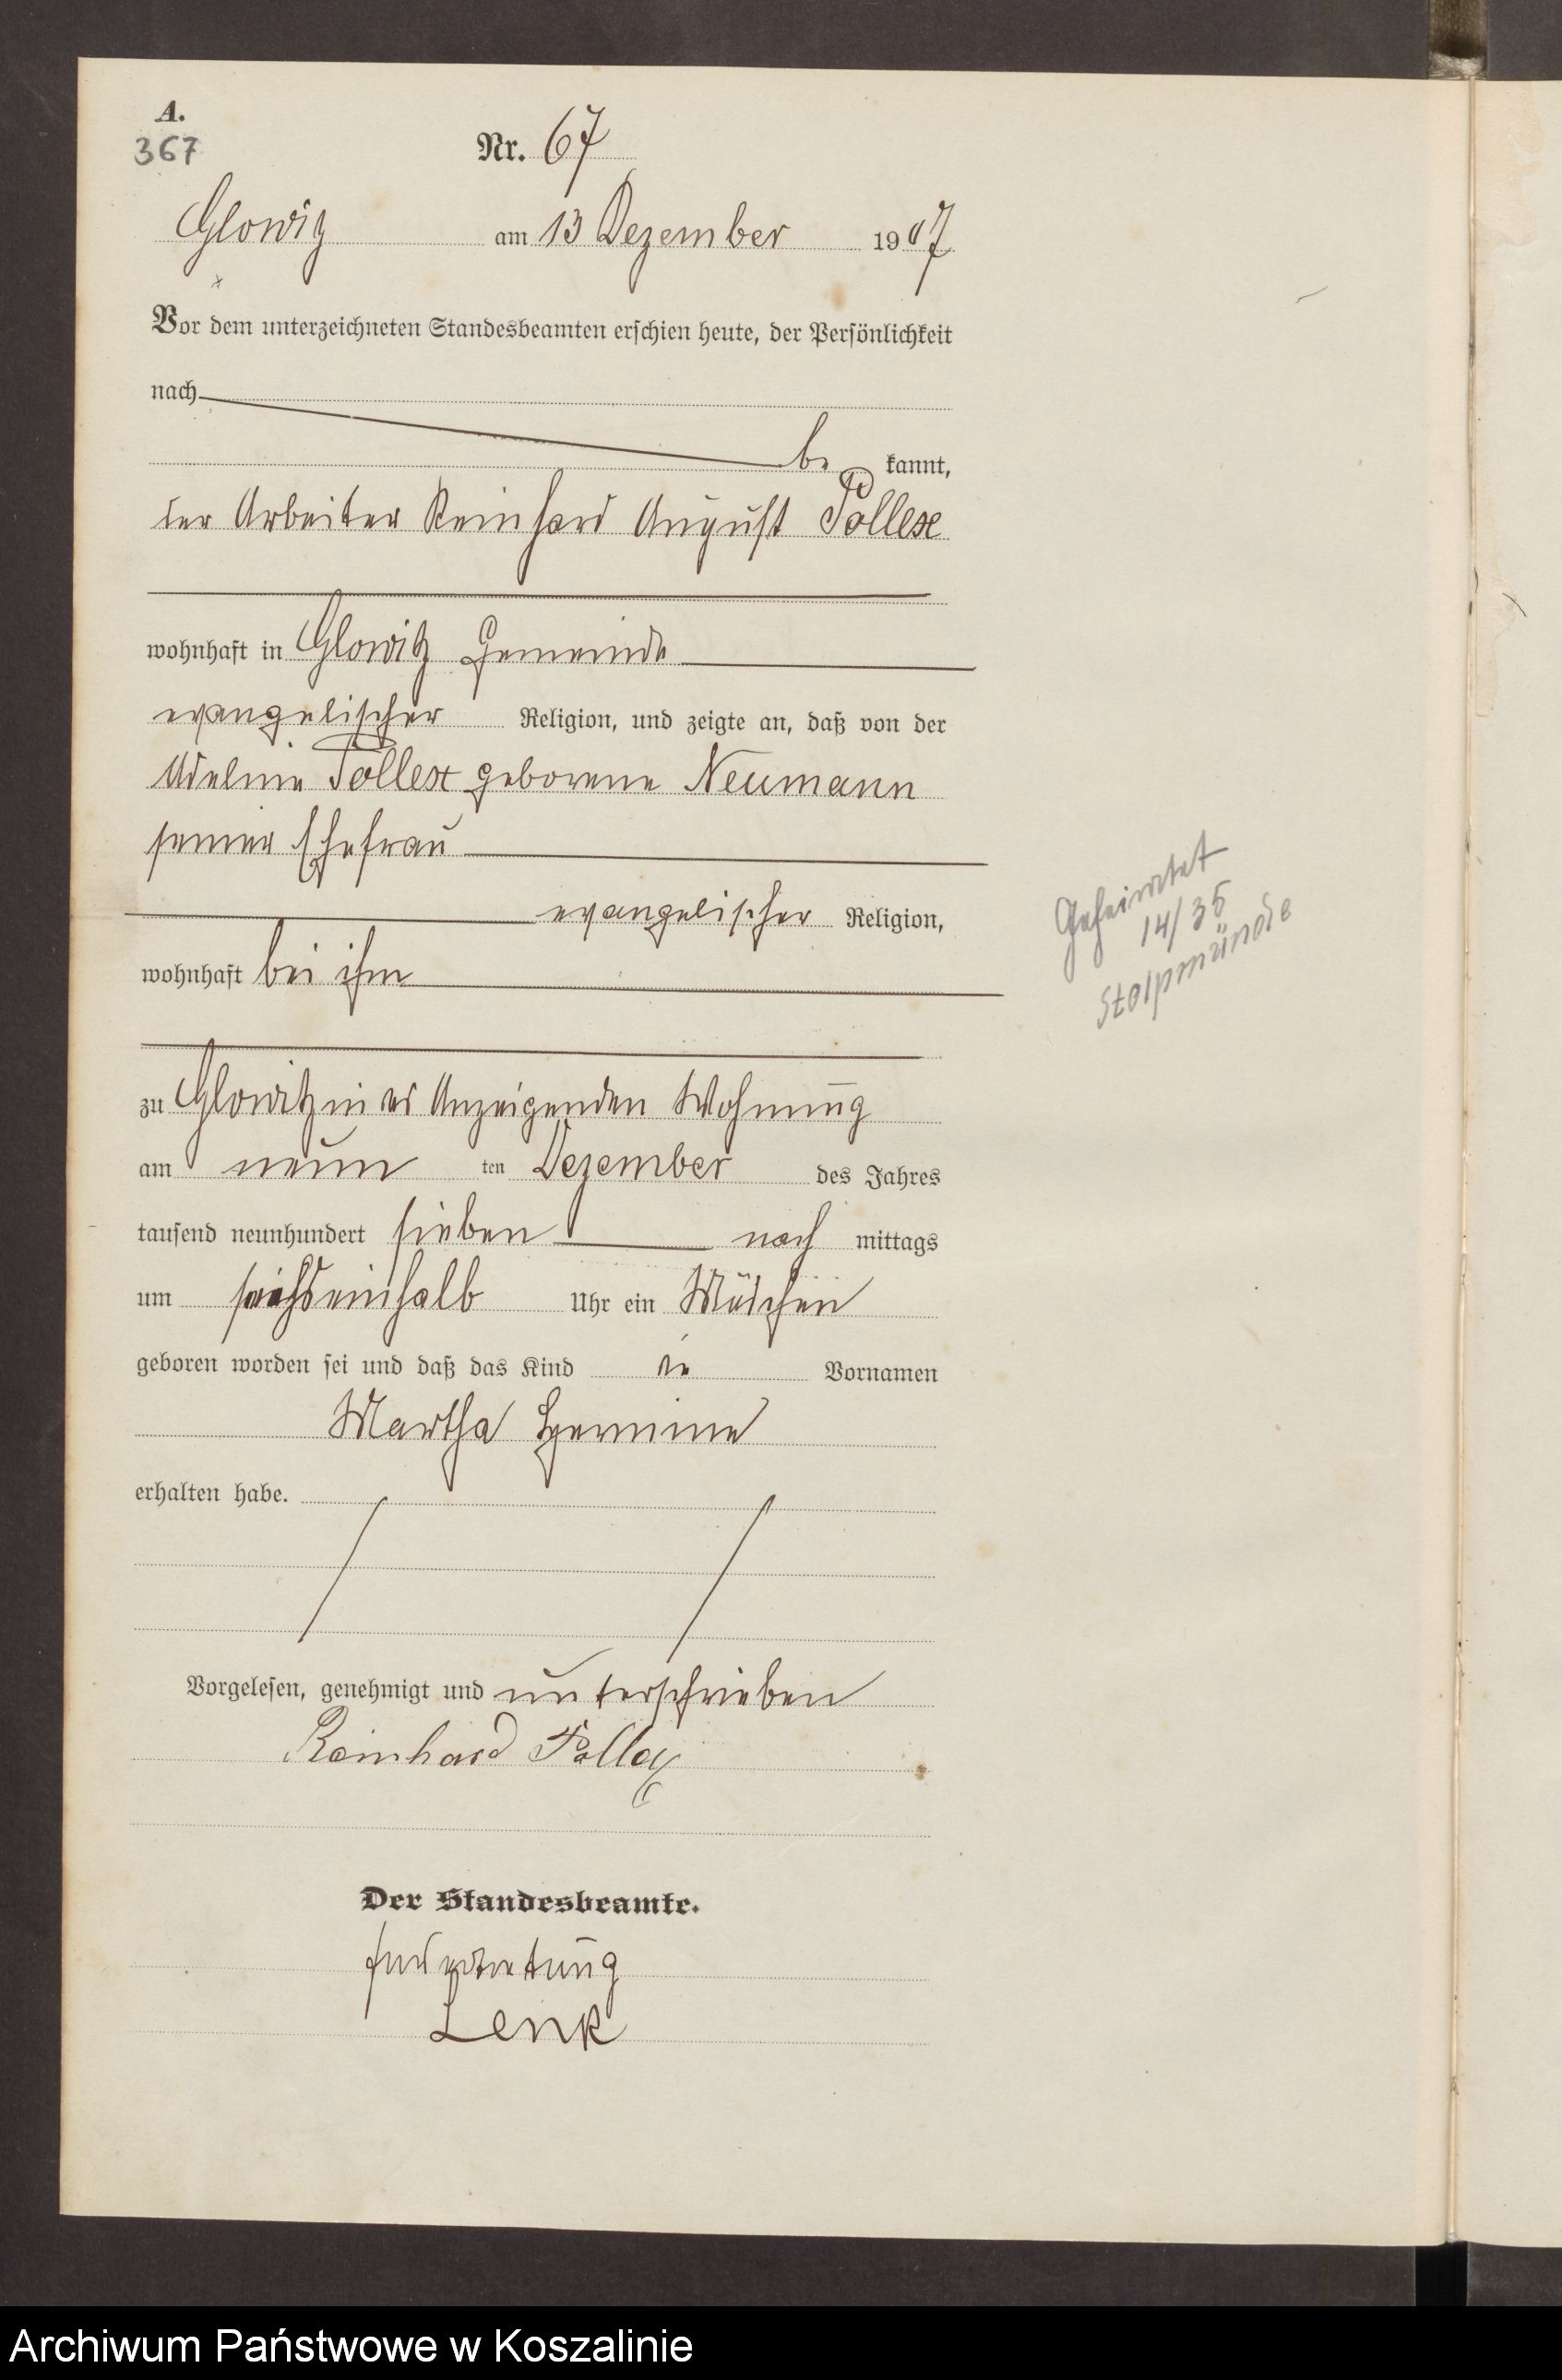 A.
367
Nr. 67
Glowitz am 13 Dezember 1907
Vor dem unterzeichneten Standesbeamten erschien heute, der Persönlichkeit
nach
be kannt,
der Arbeiter Reinhard August Pollex
wohnhaft in Glowitz Gemeinde
evangelischer Religion, und zeigte an, daß von der
Pollex geborene Neumann
seiner Ehefrau
evangelischer Religion,
wohnhaft bei ihm
zu Glowitz in des Anzeigenden Wohnung
am neun ten Dezember des Jahres
tausend neunhundert sieben nach mittags
um sechseinhalb Uhr ein Mädchen
geboren worden sei und daß das Kind die Vornamen
Martha Hermine
erhalten habe.
Vorgelesen, genehmigt und unterschrieben
Reinhard Pollex
Der Standesbeamte.
In Vertretung
Lenk
Geheiratet
14/35
Stolpmünde
Archiwum Państwowe w Koszalinie